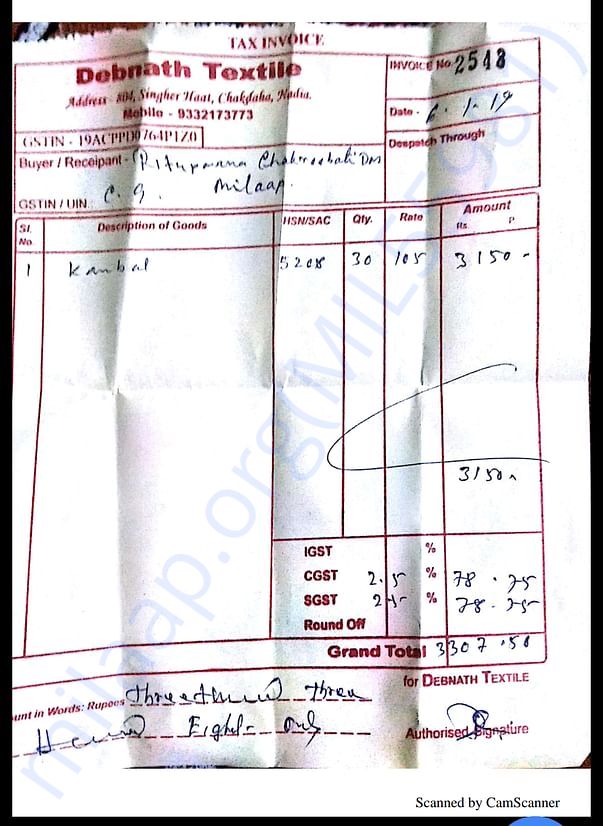 TAX INVOICE
Debnath Textile
Address - 804, Singher Haat, Chakdaha, Nadia.
Mobile - 9332173773
GSTIN - 19ACPPD0764P1Z0
INVOICE No. 2548
Date - 6.1.19
Despatch Through
Buyer / Receipant - Rituparna
C. G. Milaap.
GSTIN / UIN.
Sl. No. Description of Goods HSN/SAC Qty. Rate Amount Rs. P.
1 Kambal 5208 30 105 3150 -
3150
IGST %
CGST 2.5 % 78.75
SGST 2.5 % 78.75
Round Off
Grand Total 3307.50
for DEBNATH TEXTILE
unt in Words: Rupees Three Three
Eight Only
Authorised Signature
milaap.org(MIL55981)
Scanned by CamScanner